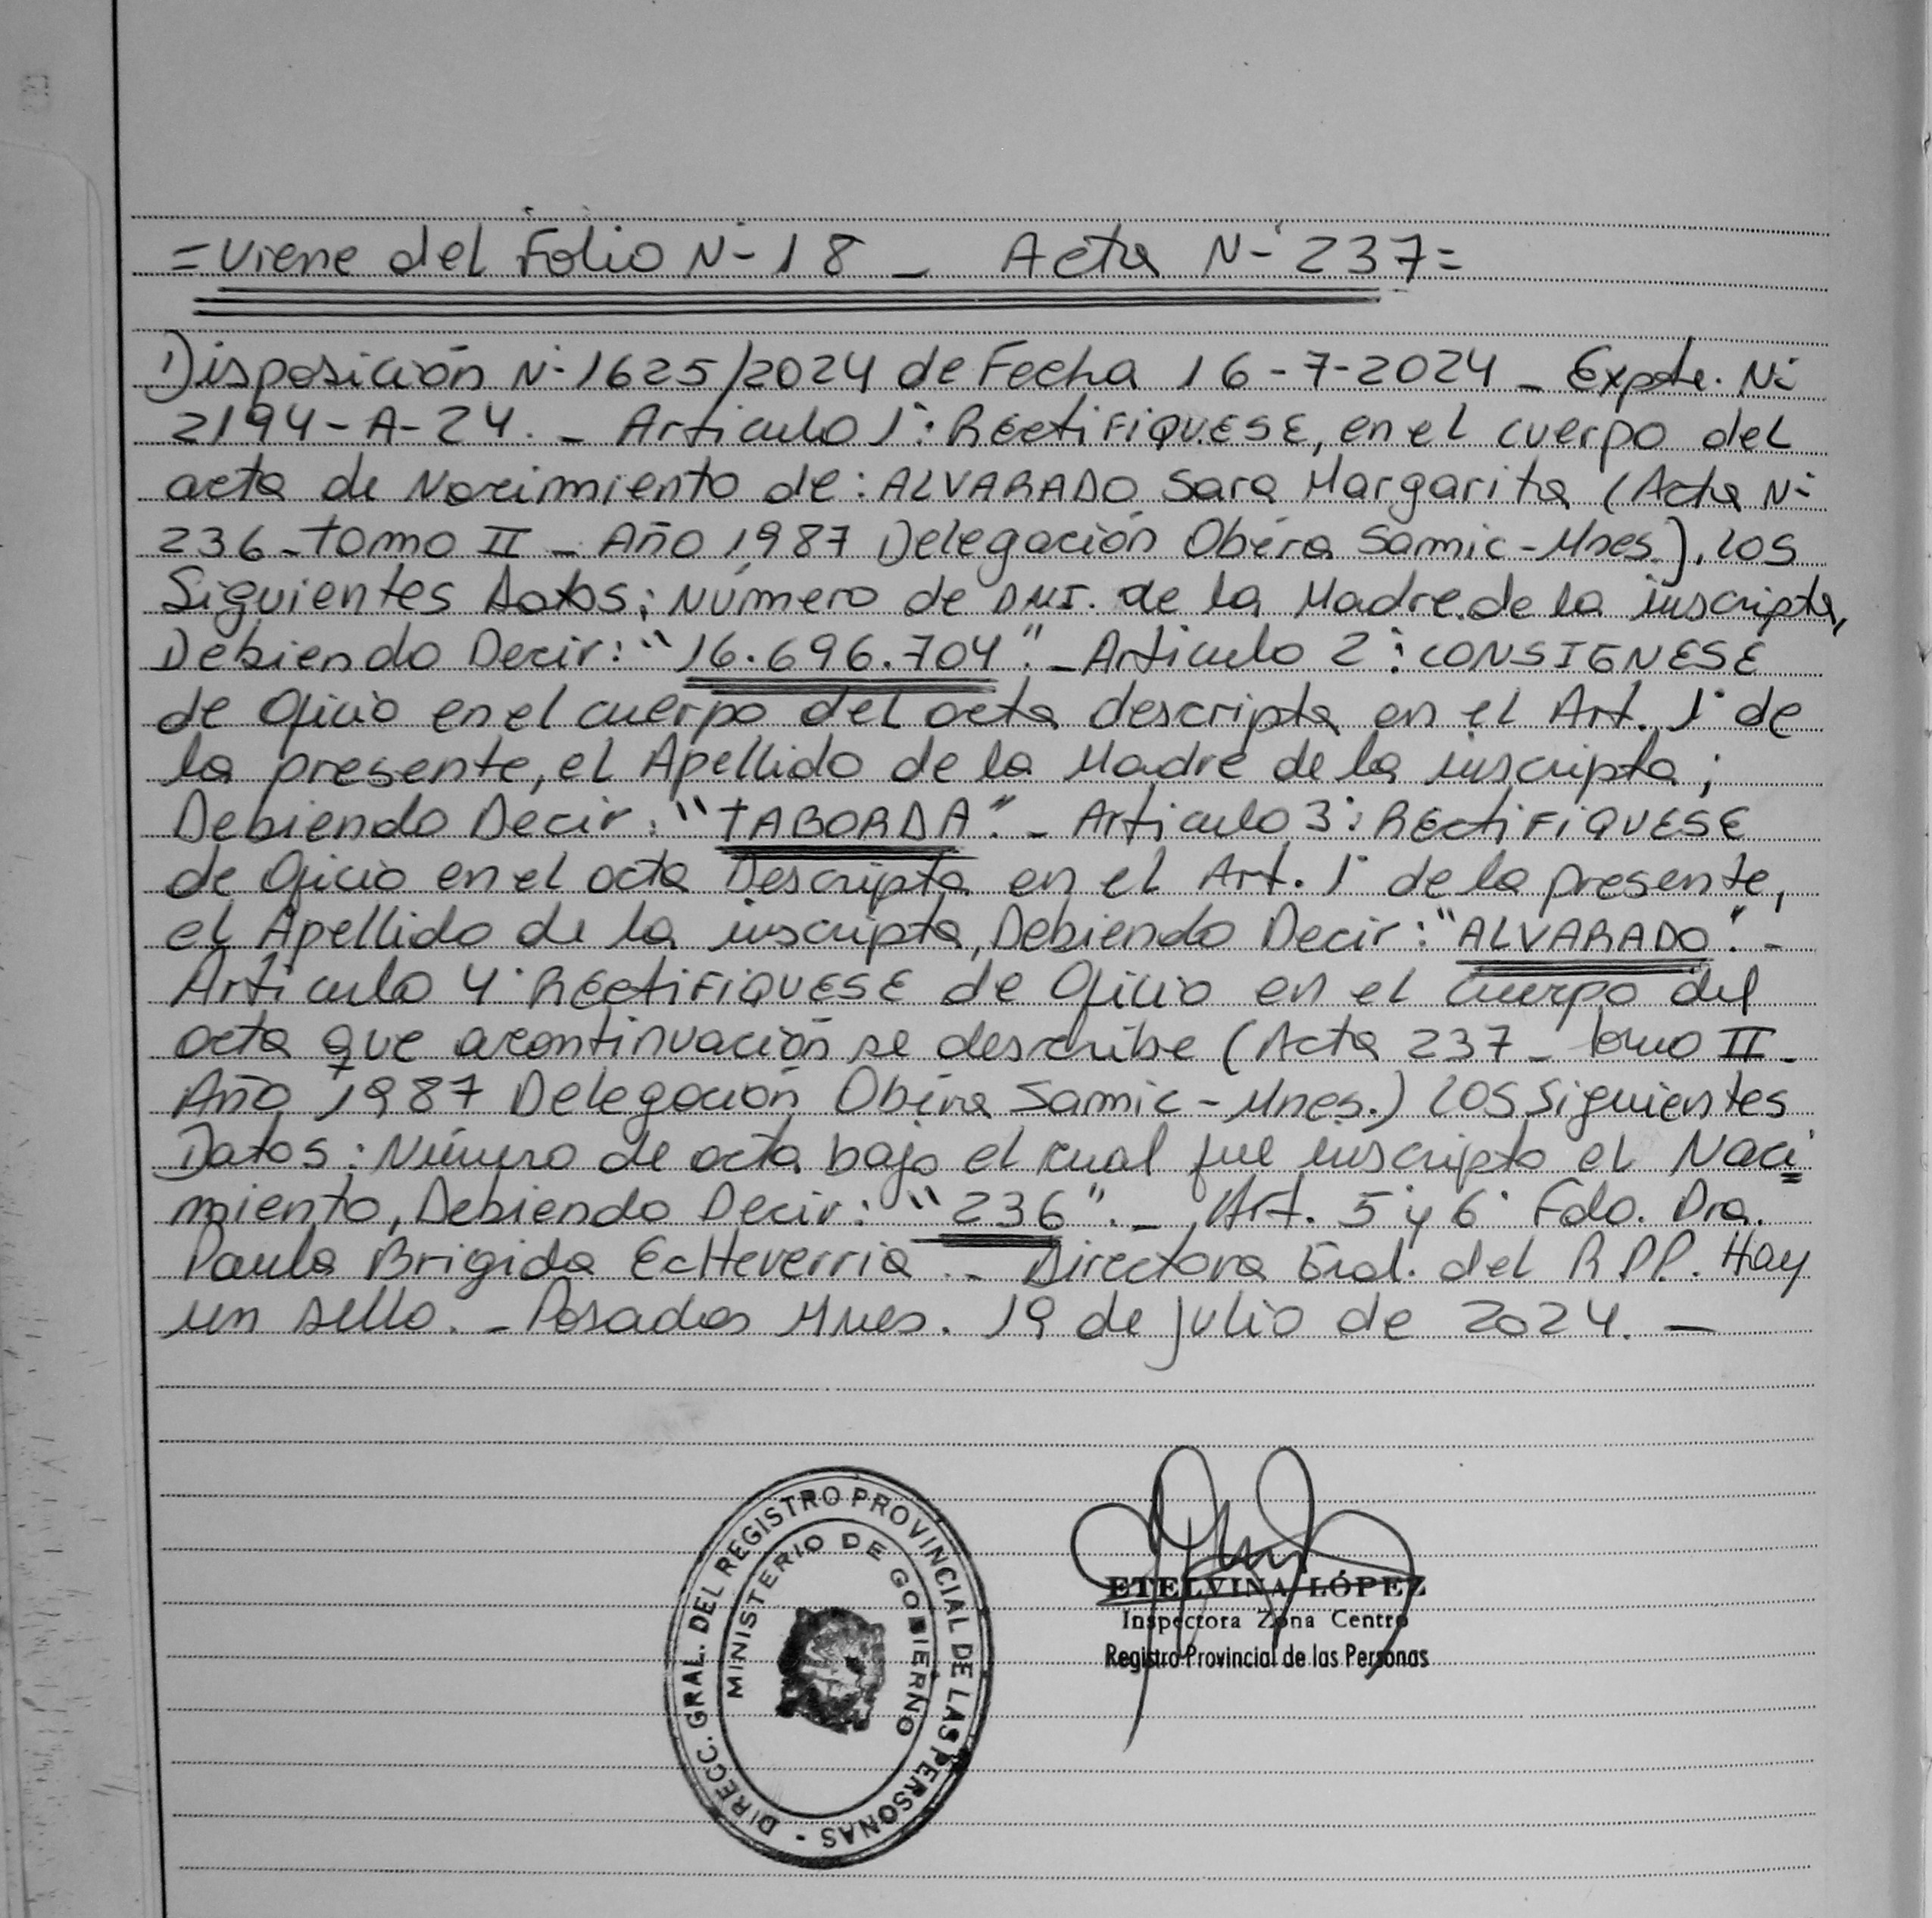 =Viene del Folio N° 18 _ Acta N° 237=
Disposición N° 1625/2024 de Fecha 16-7-2024 _ Expte. N°
2194-A-24. _ Articulo 1°: RECTIFIQUESE, en el cuerpo del
acta de Nacimiento de: ALVARADO Sara Margarita (Acta N°
236_Tomo II _ Año 1987 Delegación Obéra Samic-Mnes), los
Siguientes datos; Número de DNI. de la Madre de la inscripta,
Debiendo Decir: "16.696.704". _ Articulo 2°: CONSIGNESE
de Oficio en el cuerpo del acta descripta en el Art. 1° de
la presente, el Apellido de la Madre de la inscripta;
Debiendo Decir: "TABORDA". _ Articulo 3°: RECTIFIQUESE
de Oficio en el acta Descripta en el Art. 1° de la presente,
el Apellido de la inscripta, Debiendo Decir: "ALVARADO". _
Articulo 4° RECTIFIQUESE de Oficio en el cuerpo del
acta que acontinuación se describe (Acta 237 _ Tomo II _
Año 1987 Delegación Obéra Samic - Mnes.) los Siguientes
Datos: Número de acta bajo el cual fue inscripto el Naci=
miento, Debiendo Decir: "236". _ Art. 5° y 6° Fdo. Dra.
Paula Brigida EcHeverria. _ Directora Gral. del R.P.P. Hay
un sello. _ Posadas Mnes. 19 de julio de 2024. —
DIRECC. GRAL. DEL REGISTRO PROVINCIAL DE LAS PERSONAS -
MINISTERIO DE GOBIERNO
ETELVINA LÓPEZ
Inspectora Zona Centro
Registro Provincial de las Personas